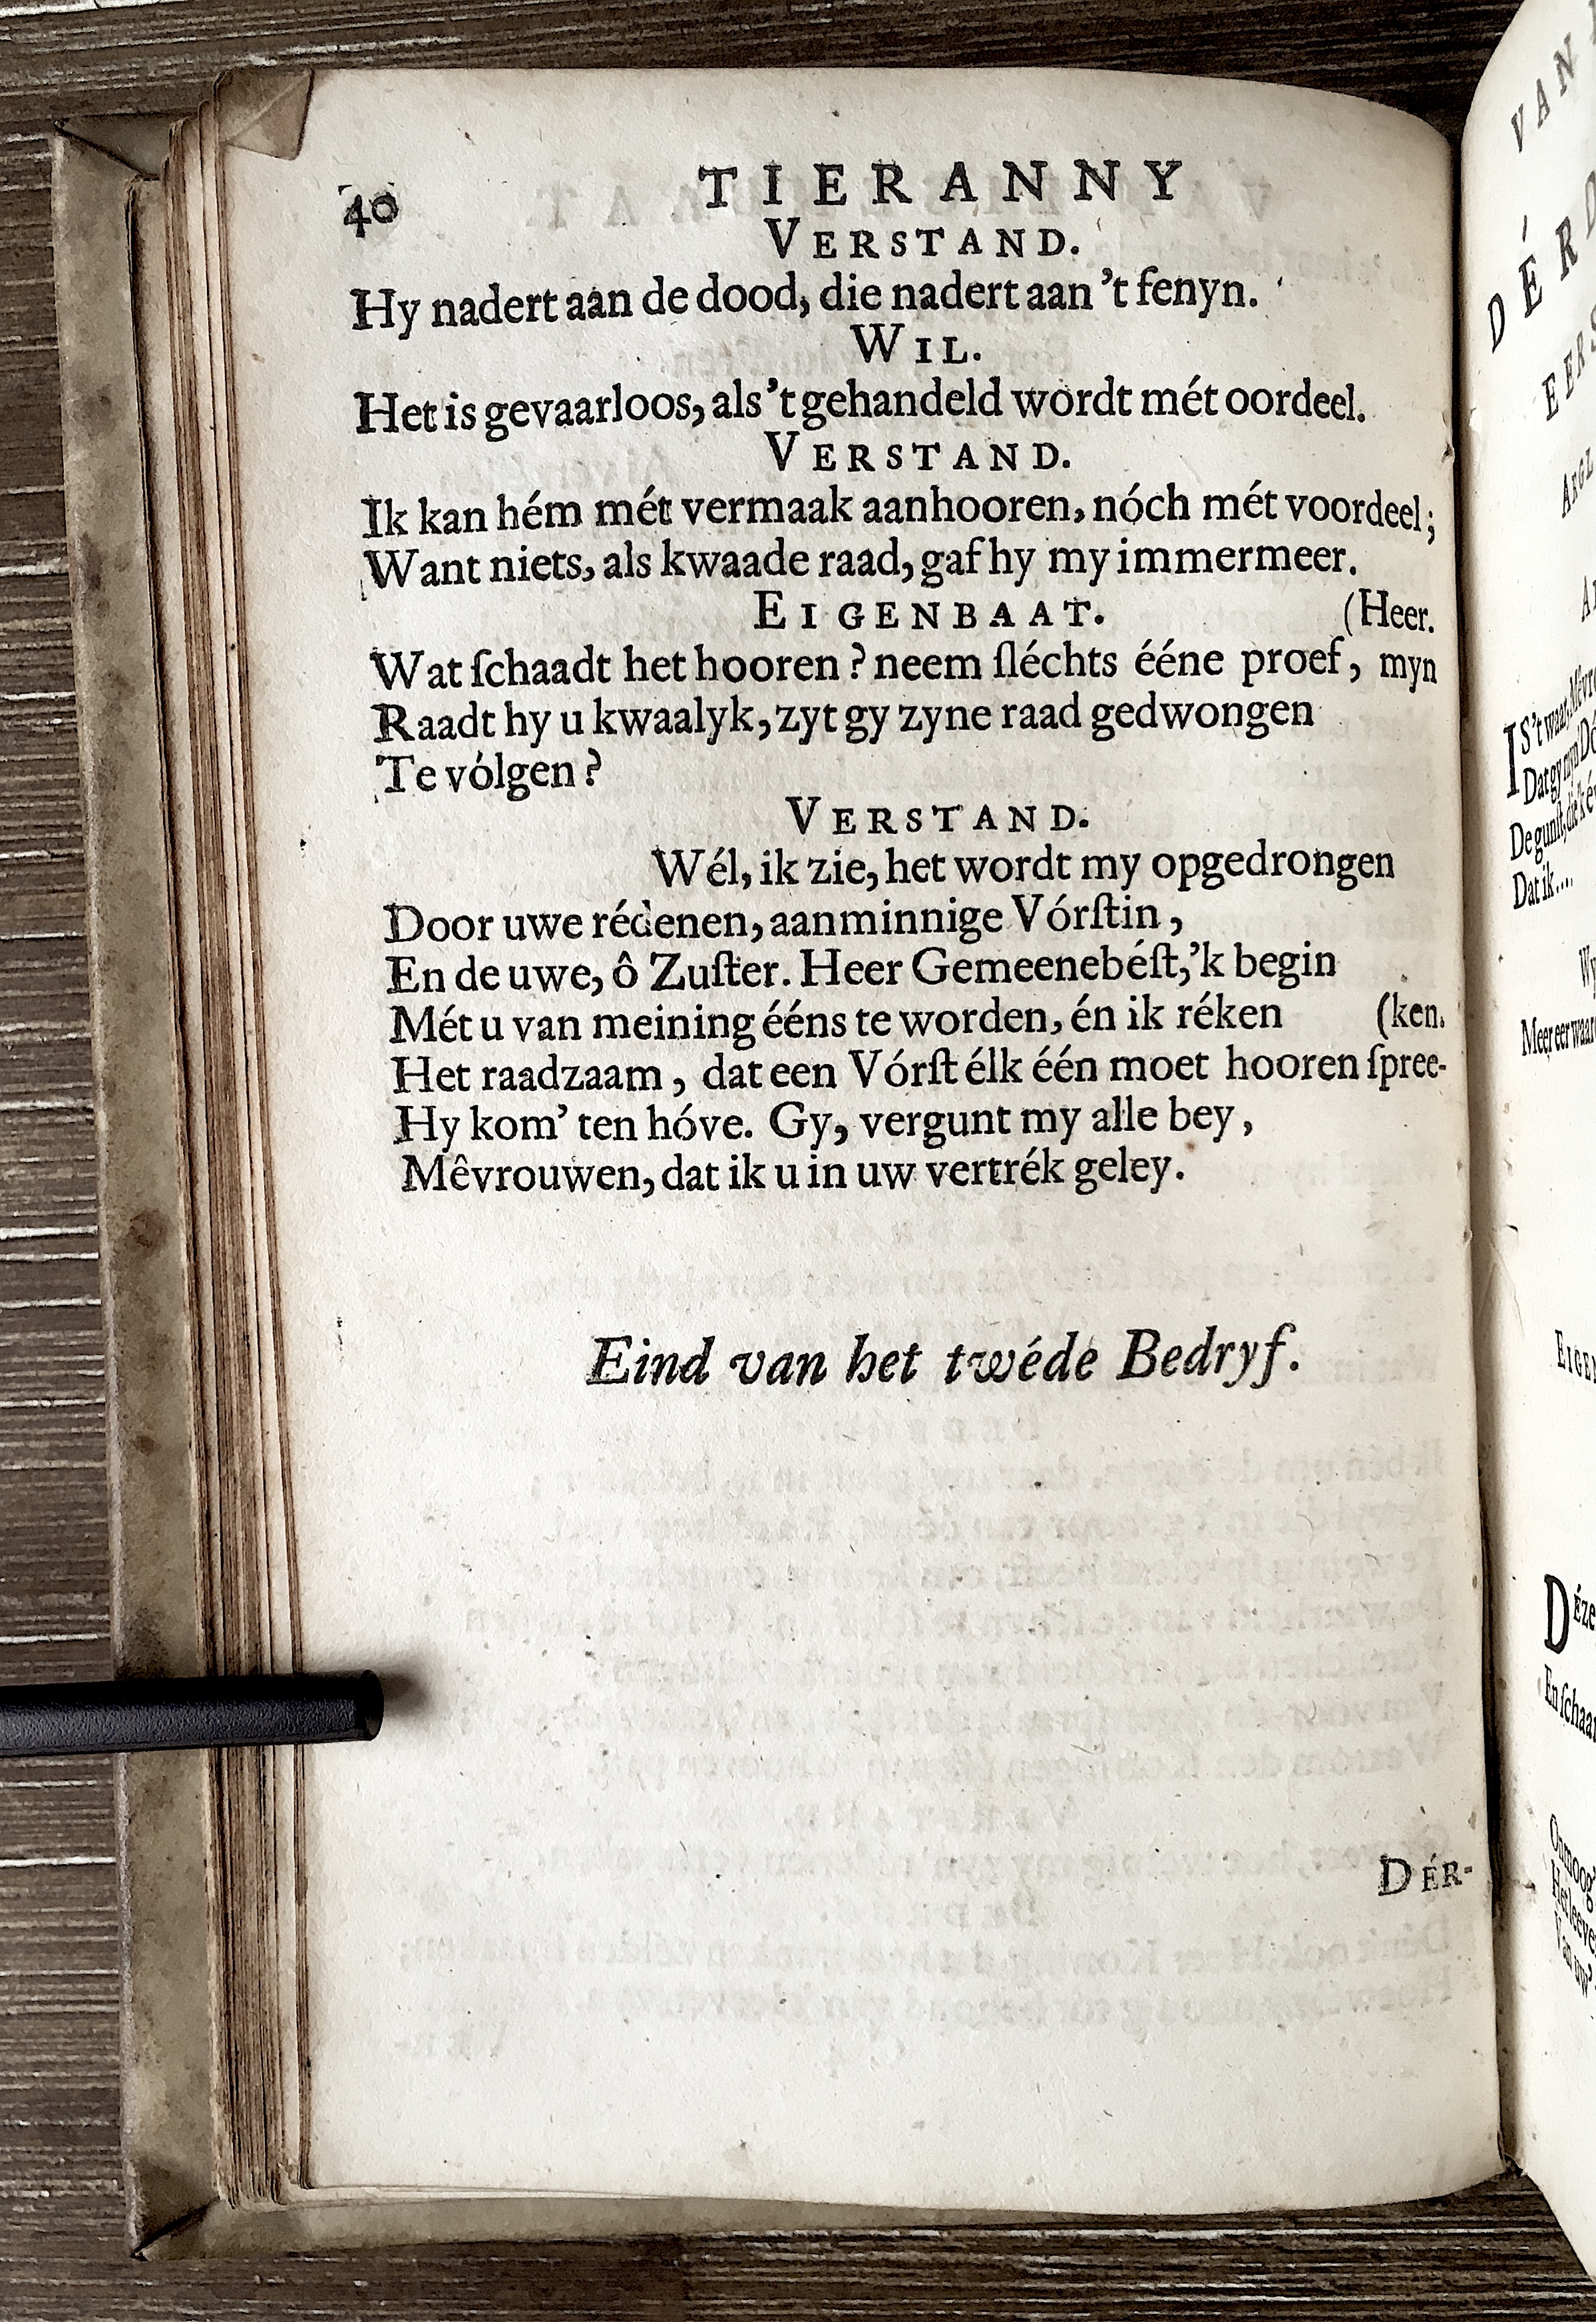 40 TIERANNY
VERSTAND.
Hy nadert aan de dood, die nadert aan 't fenyn.
WIL.
Het is gevaarloos, als 't gehandeld wordt mét oordeel.
VERSTAND.
Ik kan hém mét vermaak aanhooren, nóch mét voordeel;
Want niets, als kwaade raad, gaf hy my immermeer.
EIGENBAAT. (Heer.
Wat ſchaadt het hooren? neem ſléchts ééne proef, myn
Raadt hy u kwaalyk, zyt gy zyne raad gedwongen
Te vólgen?
VERSTAND.
Wél, ik zie, het wordt my opgedrongen
Door uwe rédenen, aanminnige Vórſtin,
En de uwe, ô Zuſter. Heer Gemeenebéſt, 'k begin
Mét u van meining ééns te worden, én ik réken (ken.
Het raadzaam, dat een Vórſt élk één moet hooren ſpree-
Hy kom' ten hóve. Gy, vergunt my alle bey,
Mêvrouwen, dat ik u in uw vertrék geley.
Eind van het twéde Bedryf.
DÉR-
VAN
IS 't waar,
Dat gy myn
De gunſt, die
Dat ik....